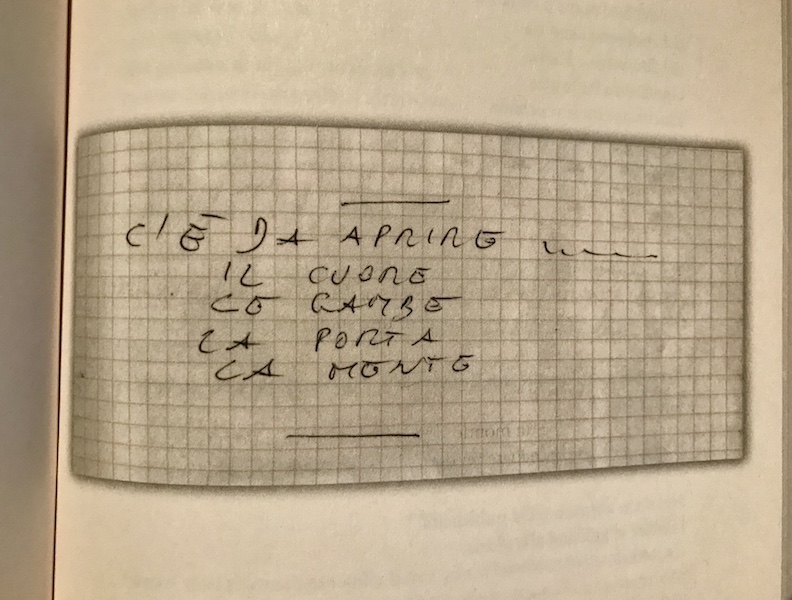 C'È DA APRIRE ......
IL CUORE
LE GAMBE
LA PORTA
LA MENTE